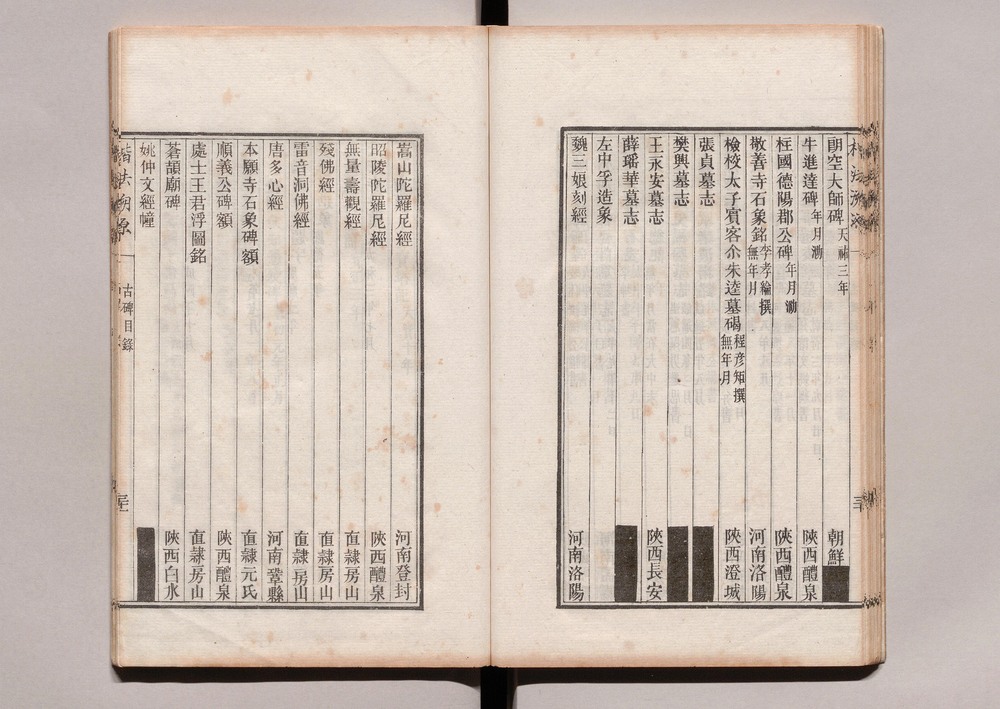 朗空大師碑 天祐三年 朝鮮
牛進達碑 年月泐 陝西醴泉
柱國德陽郡公碑 年月泐 陝西醴泉
敬善寺石象銘 李孝綸撰 無年月 河南洛陽
檢校太子賓客尒朱逵墓碣 程彦矩撰 無年月 陝西澄城
張貞墓志
樊興墓志
王永安墓志 陝西長安
薛瑶華墓志
左中孚造象
魏三娘刻經 河南洛陽
嵩山陀羅尼經 河南登封
昭陵陀羅尼經 陝西醴泉
無量壽觀經 直隸房山
殘佛經 直隸房山
雷音洞佛經 直隸房山
唐多心經 河南鞏縣
本願寺石象碑額 直隸元氏
順義公碑額 陝西醴泉
處士王君浮圖銘 直隸房山
蒼頡廟碑 陝西白水
姚仲文經幢
楷法溯源 古碑目錄